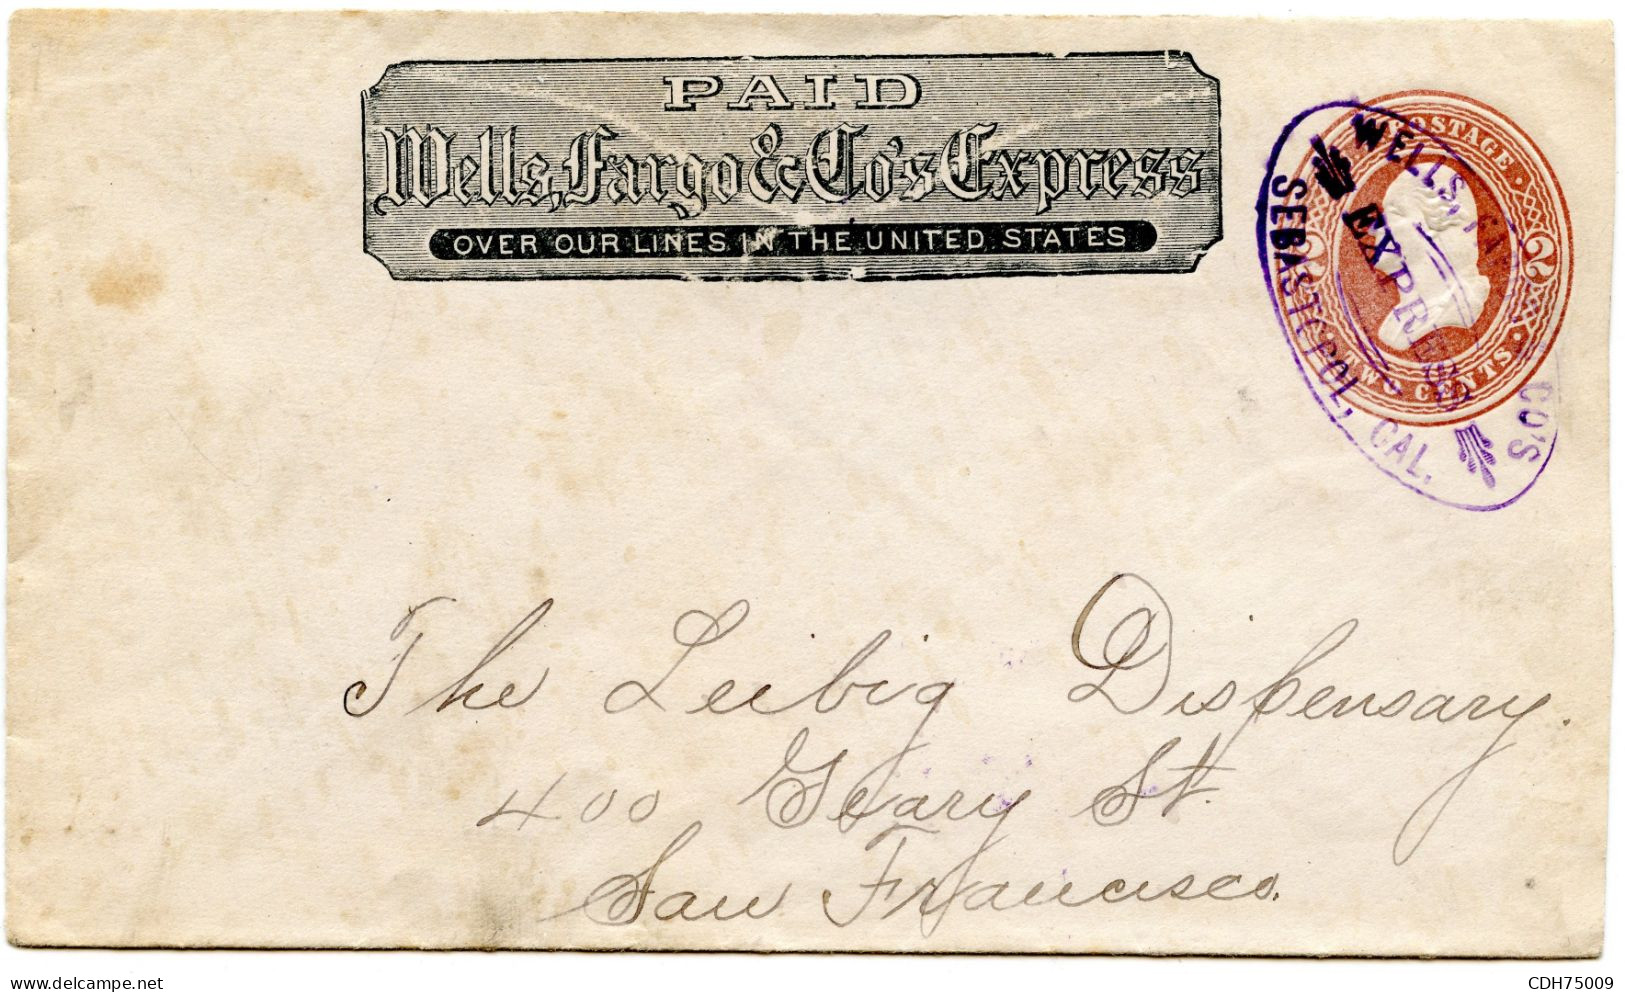 PAID
Wells, Fargo & Co's Express
OVER OUR LINES IN THE UNITED STATES
POSTAGE
2 2
TWO CENTS
WELLS, FARGO CO'S
EXPRESS
SEBASTOPOL, CAL.
The Leibig Dispensary.
400 Geary St.
San Francisco.
CDH75009